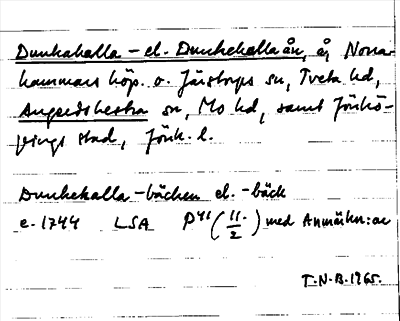 Dunkahalla- el. Dunkehallaån, å, Norra-
hammars köp. o. Järstorps sn, Tveta hd,
Angerdshestra sn, Mo hd, samt Jönkö-
pings stad, Jönk. l.
Dunkehalla-bäcken el. -bäck
e. 1744 LSA P41 (11/2) med Anmärkn:ar
T.N.B. 1965.